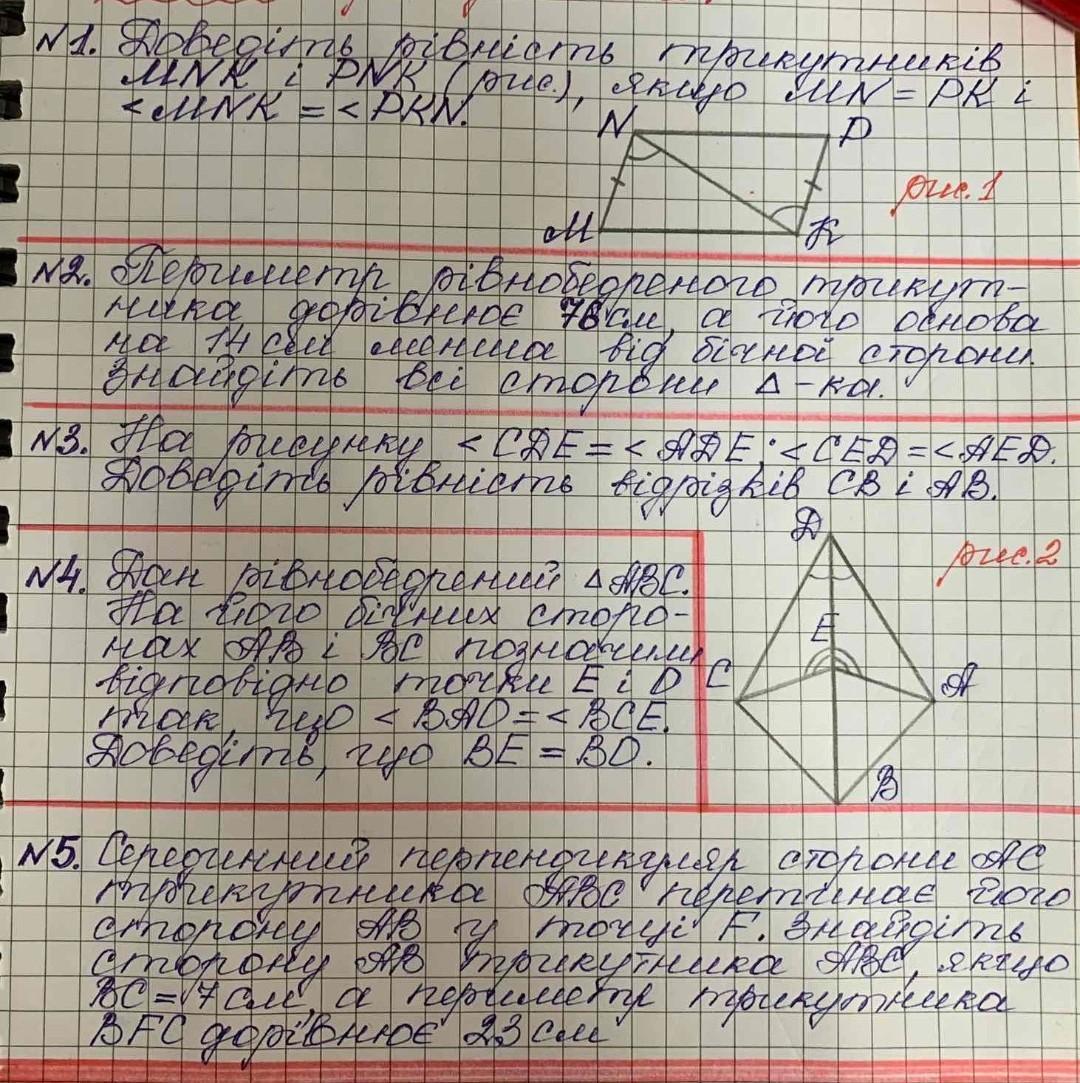 №1. Доведіть рівність трикутників
MNK і PNK (рис.), якщо MN = PK і
<MNK = <PKN.
N P
рис.1
M K
№2. Периметр рівнобедреного трикут-
ника дорівнює 76 см, а його основа
на 14 см менша від бічної сторони.
Знайдіть всі сторони Δ-ка.
№3. На рисунку <CDE = <ADE; <CED = <AED.
Доведіть рівність відрізків CB і AB.
D
рис.2
E
C A
B
№4. Дан рівнобедрений ΔABC.
На його бічних сторо-
нах AB і BC позначили
відповідно точки E і D
так, що <BAD = <BCE.
Доведіть, що BE = BD.
№5. Серединний перпендикуляр сторони AC
трикутника ABC перетинає його
сторону AB у точці F. Знайдіть
сторону AB трикутника ABC, якщо
BC = 7 см, а периметр трикутника
BFC дорівнює 23 см